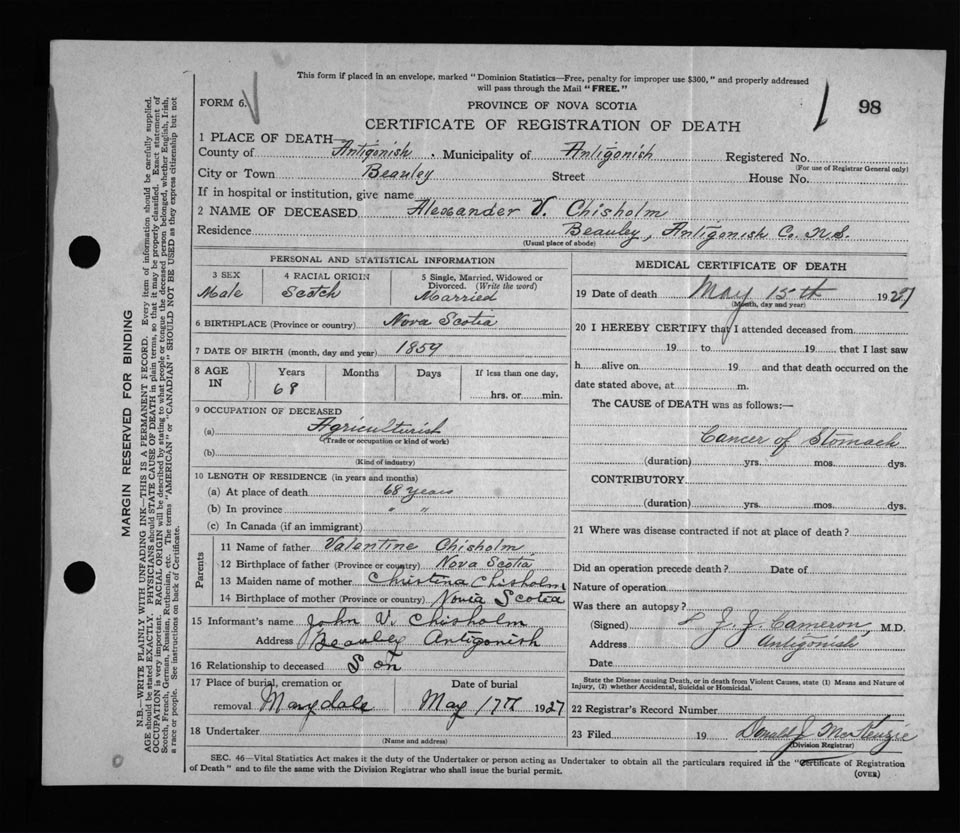 This form if placed in an envelope, marked "Dominion Statistics—Free, penalty for improper use $300," and properly addressed
will pass through the Mail "FREE."
FORM 6.
PROVINCE OF NOVA SCOTIA
98
CERTIFICATE OF REGISTRATION OF DEATH
1 PLACE OF DEATH—
County of Antigonish. Municipality of Antigonish Registered No.
(For use of Registrar General only)
City or Town Beauley Street House No.
If in hospital or institution, give name
2 NAME OF DECEASED Alexander V. Chisholm
Residence Beauley, Antigonish Co. N.S.
(Usual place of abode)
PERSONAL AND STATISTICAL INFORMATION
3 SEX Male
4 RACIAL ORIGIN Scotch
5 Single, Married, Widowed or Divorced. (Write the word) Married
6 BIRTHPLACE (Province or country) Nova Scotia
7 DATE OF BIRTH (month, day and year) 1859
8 AGE IN Years Months Days If less than one day,
68 hrs. or min.
9 OCCUPATION OF DECEASED
(a) Agriculturist
(Trade or occupation or kind of work)
(b)
(Kind of industry)
10 LENGTH OF RESIDENCE (in years and months)
(a) At place of death 68 years
(b) In province " "
(c) In Canada (if an immigrant)
Parents
11 Name of father Valentine Chisholm
12 Birthplace of father (Province or country) Nova Scotia
13 Maiden name of mother Christena Chisholm
14 Birthplace of mother (Province or country) Novia Scotia
15 Informant's name John V. Chisholm
Address Beauley Antigonish
16 Relationship to deceased Son
17 Place of burial, cremation or removal Marydale
Date of burial May 17th 1927
18 Undertaker
(Name and address)
MEDICAL CERTIFICATE OF DEATH
19 Date of death May 15th 1927
(Month, day and year)
20 I HEREBY CERTIFY that I attended deceased from
19 to 19 that I last saw
h alive on 19 and that death occurred on the
date stated above, at m.
The CAUSE of DEATH was as follows:—
Cancer of Stomach
(duration) yrs. mos. dys.
CONTRIBUTORY
(duration) yrs. mos. dys.
21 Where was disease contracted if not at place of death?
Did an operation precede death? Date of
Nature of operation
Was there an autopsy?
(Signed) J. J. Cameron, M.D.
Address Antigonish
Date
State the Disease causing Death, or in death from Violent Causes, state (1) Means and Nature of
Injury, (2) whether Accidental, Suicidal or Homicidal.
22 Registrar's Record Number
23 Filed 19 Donald J MacKenzie
(Division Registrar)
SEC. 46—Vital Statistics Act makes it the duty of the Undertaker or person acting as Undertaker to obtain all the particulars required in the "Certificate of Registration
of Death" and to file the same with the Division Registrar who shall issue the burial permit.
(OVER)
MARGIN RESERVED FOR BINDING
N.B.—WRITE PLAINLY WITH UNFADING INK—THIS IS A PERMANENT RECORD. Every item of information should be carefully supplied.
AGE should be stated EXACTLY. PHYSICIANS should STATE CAUSE OF DEATH in plain terms, so that it may be properly classified. Exact statement of
OCCUPATION is very important. RACIAL ORIGIN will be described by stating to what people or tongue the deceased person belonged, whether English, Irish,
Scotch, French, German, Russian, Ruthenian, etc. The terms "AMERICAN" or "CANADIAN" SHOULD NOT BE USED as they express citizenship but not
a race or people. See instructions on back of Certificate.